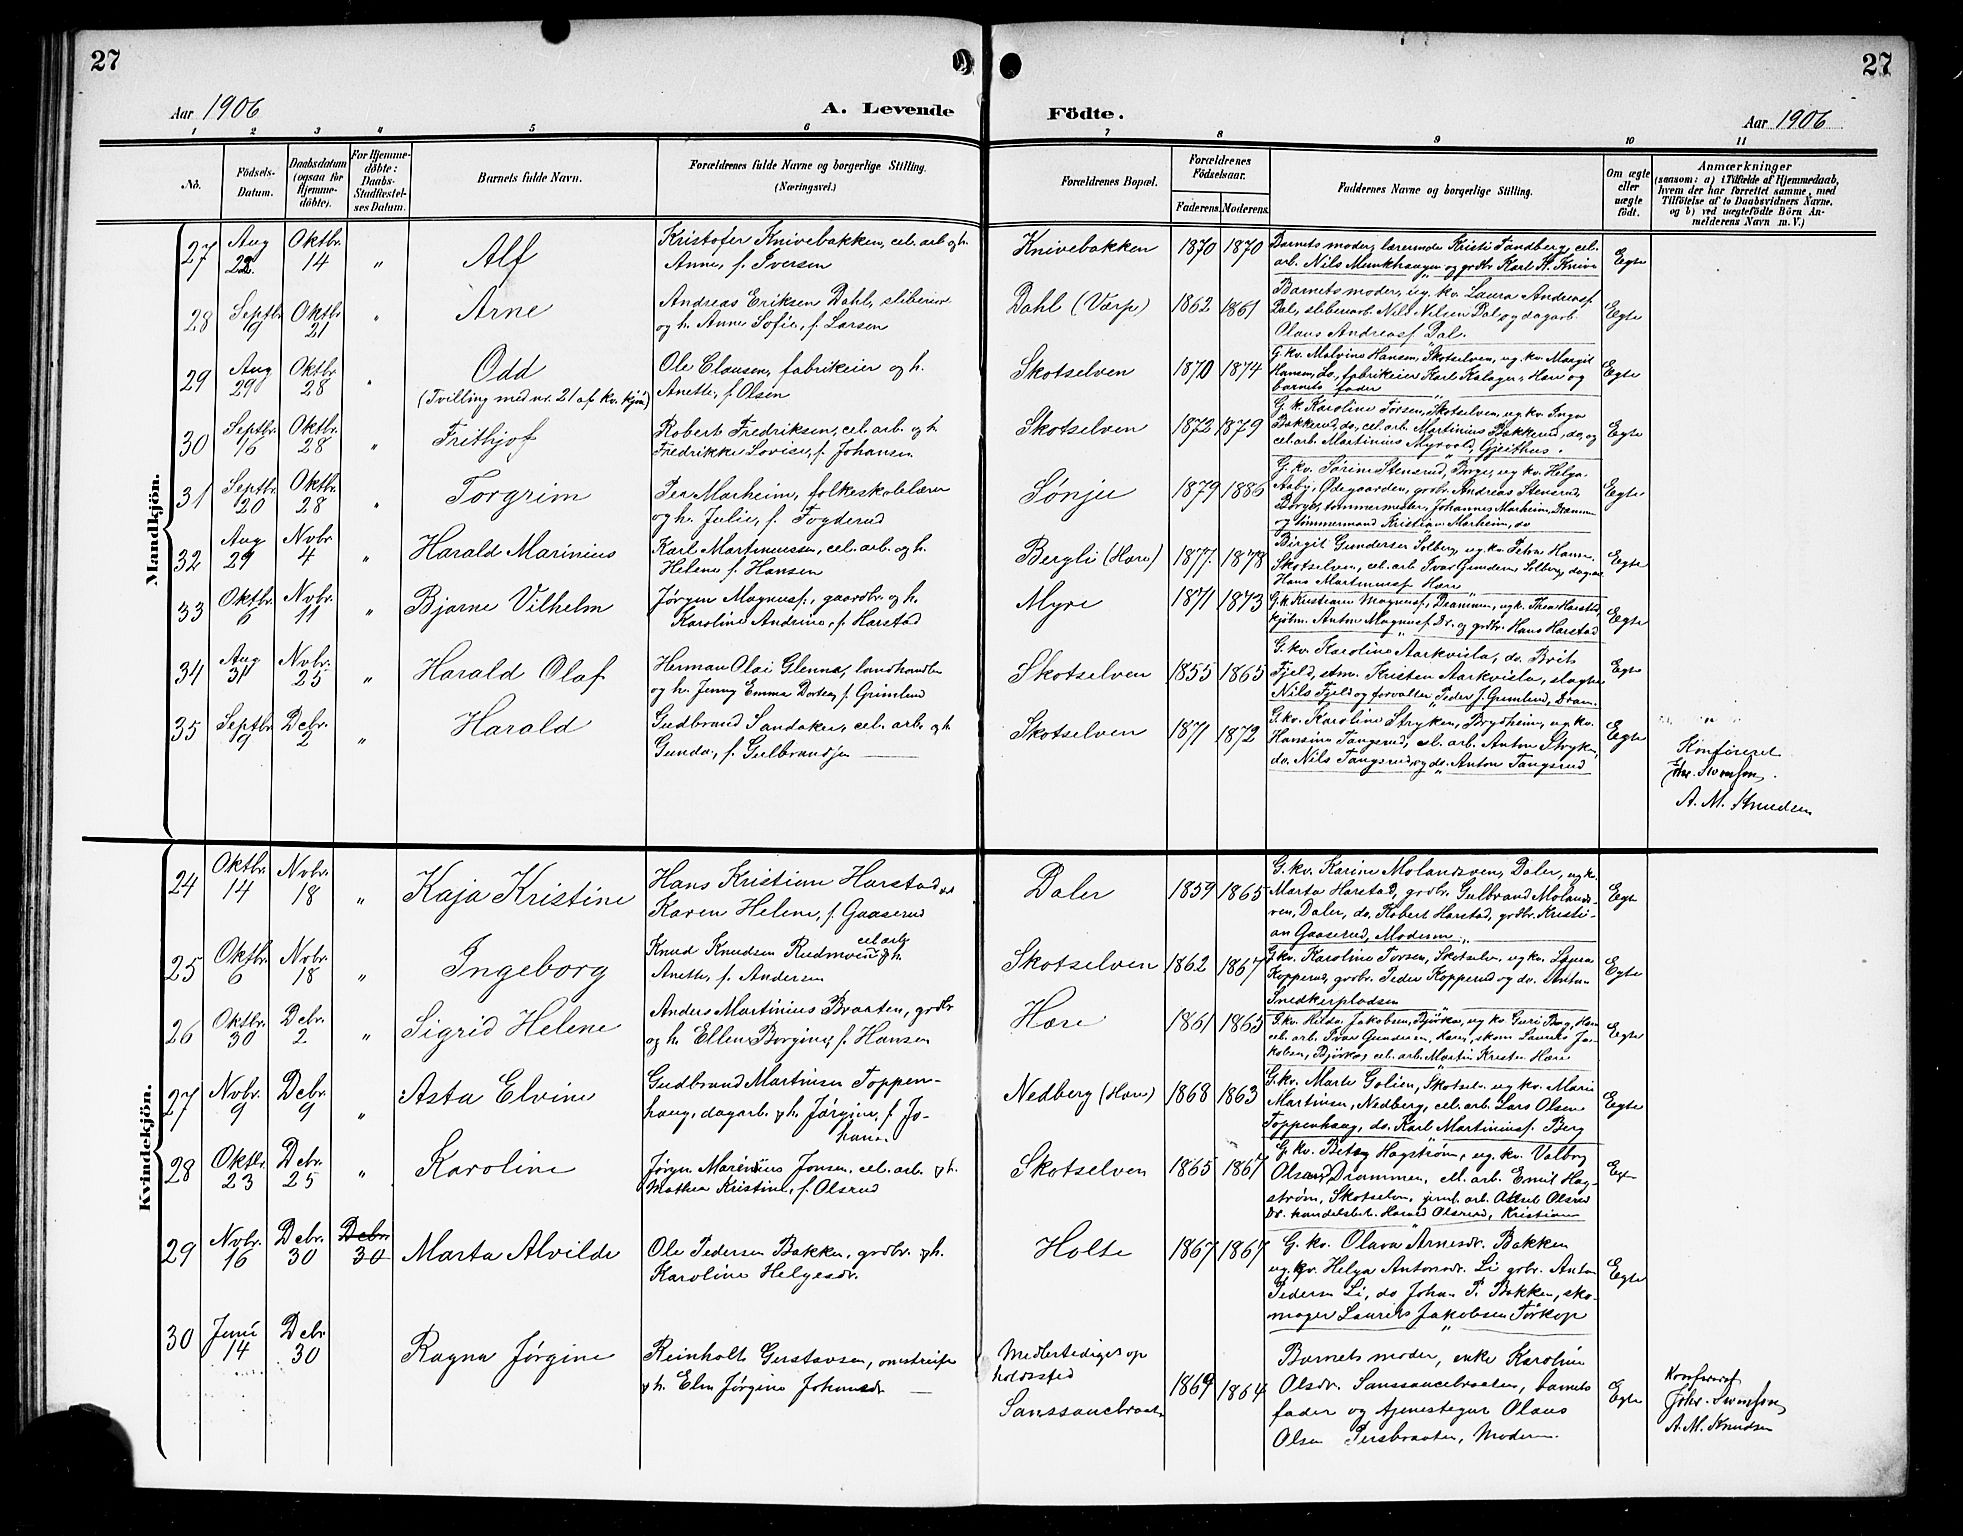 27
27
Aar 1906
A. Levende
Födte.
Aar 1906
1 2 3 4 5 6 7 8 9 10 11
No.
Födsels-
Datum.
Daabsdatum
(ogsaa for
Hjemme-
döbte).
For Hjemme-
döbte:
Daabs-
Stadfæstel-
ses Datum.
Barnets fulde Navn.
Forældrenes fulde Navne og borgerlige Stilling.
(Næringsvei.)
Forældrenes Bopæl.
Forældrenes
Födselsaar.
Faderens.
Moderens.
Faddernes Navne og borgerlige Stilling.
Om ægte
eller
uægte
födt.
Anmærkninger
(saasom: a) i Tilfælde af Hjemmedaab,
hvem der har forrettet samme, med
Tilföielse af to Daabsvidners Navne.
og b) ved uægtefödte Börn An-
melderens Navn m. V.)
Mandkjön.
27 Aug 22. Oktbr. 14 " Alf
Kristofer Knivebakken, cel. arb og h.
Anne, f. Iversen
Knivebakken 1870 1870
Barnets moder, lærerinde Kristi Tandberg, cel.
arb. Nils Munkhaugen og grdbr Karl H. Knive
Egte
28 Septbr. 9 Oktbr. 21 " Arne
Andreas Eriksen Dahl, sliberiar
og h. Anne Sofie, f. Larsen
Dahl (Varp) 1862 1861
Barnets moder, ug. kv. Laura Andreasf
Dal, sliberiarb. Nils Nilsen Dal, og dagarb.
Olaus Andreasf Dal.
Egte
29 Aug 29 Oktbr 28 " Odd
(Tvilling med nr. 21 af kv. kjøn)
Ole Clausen, fabrikeier og h.
Anette, f. Olsen
Skotselven 1870 1874
G. kv. Malvine Hansen, Skotselven, ug. kv. Margit
Hansen, do, fabrikeier Karl Kalager, Hære og
barnets fader
Egte
30 Septbr. 16 Oktbr. 28 " Frithjof
Robert Fredriksen, cel. arb. og h
Fredrikke Lovise, f. Johansen
Skotselven 1872 1879
G. k. Karoline Torsen, Skotselven, ug. kv. Inga
Bakkerud, do, cel. arb. Martinius Bakkerud, do, og
cel. arb. Martinius Myrvold, Gjeithus.
Egte
31 Septbr 20 Oktbr. 28 " Torgrim
Per Marheim, folkeskolelærer
og h. Julie, f. Fogderud
Sønju 1879 1886
G. kv. Sørine Stensrud, Borge, ug. kv. Helga
Aaby, Ødegaarden, grdbr. Andreas Stensrud,
Borge, tømmermester, Johannes Marheim, Drammen
og tømmermand Kristian Marheim, do
Egte
32 Aug 29 Novbr. 4 " Harald Marinius
Karl Martinussen, cel. arb. og h.
Helene f. Hansen
Bergli (Hære) 1877. 1878
Birgit Gundersen Solberg, ug. kv. Petra Hansen
Skotselven, cel. arb Ivar Gundersen, Solberg, dagarb
Hans Martinusf Hære
Egte
33 Oktbr. 6 Novbr. 11 " Bjarne Vilhelm
Jørgen Magnusf., gaardbr og h.
Karoline Andrine, f. Harstad
Myre 1871 1873
G. k. Kristiane Magnusf, Drammen, ug k. Thea Harstad,
kjøbm. Anton Magnusf. Dr. og grdbr. Hans Harstad
Egte
34 Aug 31 Novbr. 25 " Harald Olaf
Herman Olai Glenna, landhandler
og h. Jenny Emma Dortea, f. Grimlund
Skotselven 1855 1865
G. kv. Karoline Aarkvisla, do. Brit
Fjeld, stm. Kristen Aarkvisla, slagter
Nils Fjeld og forvalter Peder J. Grimlund, Dram.
Egte
35 Septbr 9 Debr. 2 " Harald
Gudbrand Sandaker, cel. arb. og h
Gunda, f. Gulbrandsen
Skotselven 1871 1872
G. kv. Karoline Stryken, Brydheim, ug. kv.
Hansine Tangerud, cel. arb. Anton Stryken
do. Nils Tangerud og do. Anton Tangerud
Egte
Konfereret
Chr. Svensson.
A. M. Knudsen
Kvindekjön.
24 Oktbr. 14 Novbr. 18 " Kaja Kristine
Hans Kristian Harstad og
Karen Helene, f. Gaaserud
Daler 1859 1865
G. kv. Karine Molandsven, Daler, ug k.
Marta Harstad, grdbr. Gulbrand Molands-
ven, Daler, do. Robert Harstad, grdbr. Kristi-
an Gaaserud, Modum
Egte
25 Oktbr. 6 Novbr. 18 " Ingeborg
Knud Knudsen Rudmoen, cel arb og h.
Anette, f. Andersen
Skotselven 1862 1867
G. kv. Karoline Torsen, Skotselv. ug kv. Laura
Kopperud, grdbr. Peder Kopperud og do. Anton
Snedkerpladsen
Egte
26 Oktbr. 30 Debr. 2 " Sigrid Helene
Anders Martinius Braaten, grdbr
og h. Ellen Borgine, f. Hansen
Hære 1861 1865
G. kv. Hilda Jakobsen, Bjørka, ug kv Guri Berg, Hære
cel. arb. Ivar Gundersen, Hære, skom. Laurits Ja-
kobsen, Bjørka, cel. arb. Martin Kristen Hære
Egte
27 Novbr. 9 Debr. 9 " Asta Elvine
Gudbrand Martinsen Toppen-
haug, dagarb. og h. Jørgine, f. Jo-
hans.
Nedberg (Hære) 1868 1863
G. kv. Marte Golien, Skotselv. ug kv. Marie
Martinsen, Nedberg, cel. arb. Lars Olsen
Toppenhaug, do. Karl Martiniusf. Berg
Egte
28 Oktbr. 23 Debr. 25 " Karoline
Jørgen Marenius Jonsen, cel. arb. og h.
Mathea Kristine, f. Olsrud
Skotselven 1865 1867
G. kv. Betsy Hagstrøm, ug. kv. Valborg
Olsrud, Drammen, cel. arb. Emil Hag-
strøm, Skotselv. jernb. arb. Aksel Olsrud
Dr. handelsbet. Harald Olsrud, Kristiania
29 Novbr. 16 Debr. 30 Debr. 30 Marta Alvilde
Ole Pedersen Bakken, grdbr. og h.
Karoline Helgesdr.
Holte 1867 1867
G. kv. Olava Arnesdr. Bakken
ug. kv. Helga Antonsdr. Li grbr. Anton
Pedersen Li, do Johan P. Bakken, sko-
mager Laurits Jakobsen Torkop
Egte
30 Juni 14 Debr 30 Ragna Jørgine
Reinholt Gustavsen, omstreifer
og h. Elen Jørgine Johansdr
Midlertidiget op
holdssted
Sanssoucebraaten
1869 1864
Barnets moder, enke Karoline
Olsdr. Sanssoucebraaten, barnets
fader og tjenestegut Olaus
Olsen Persbraaten, Modum.
Egte
Konfereret
Chr. Svensson
A. M. Knudsen